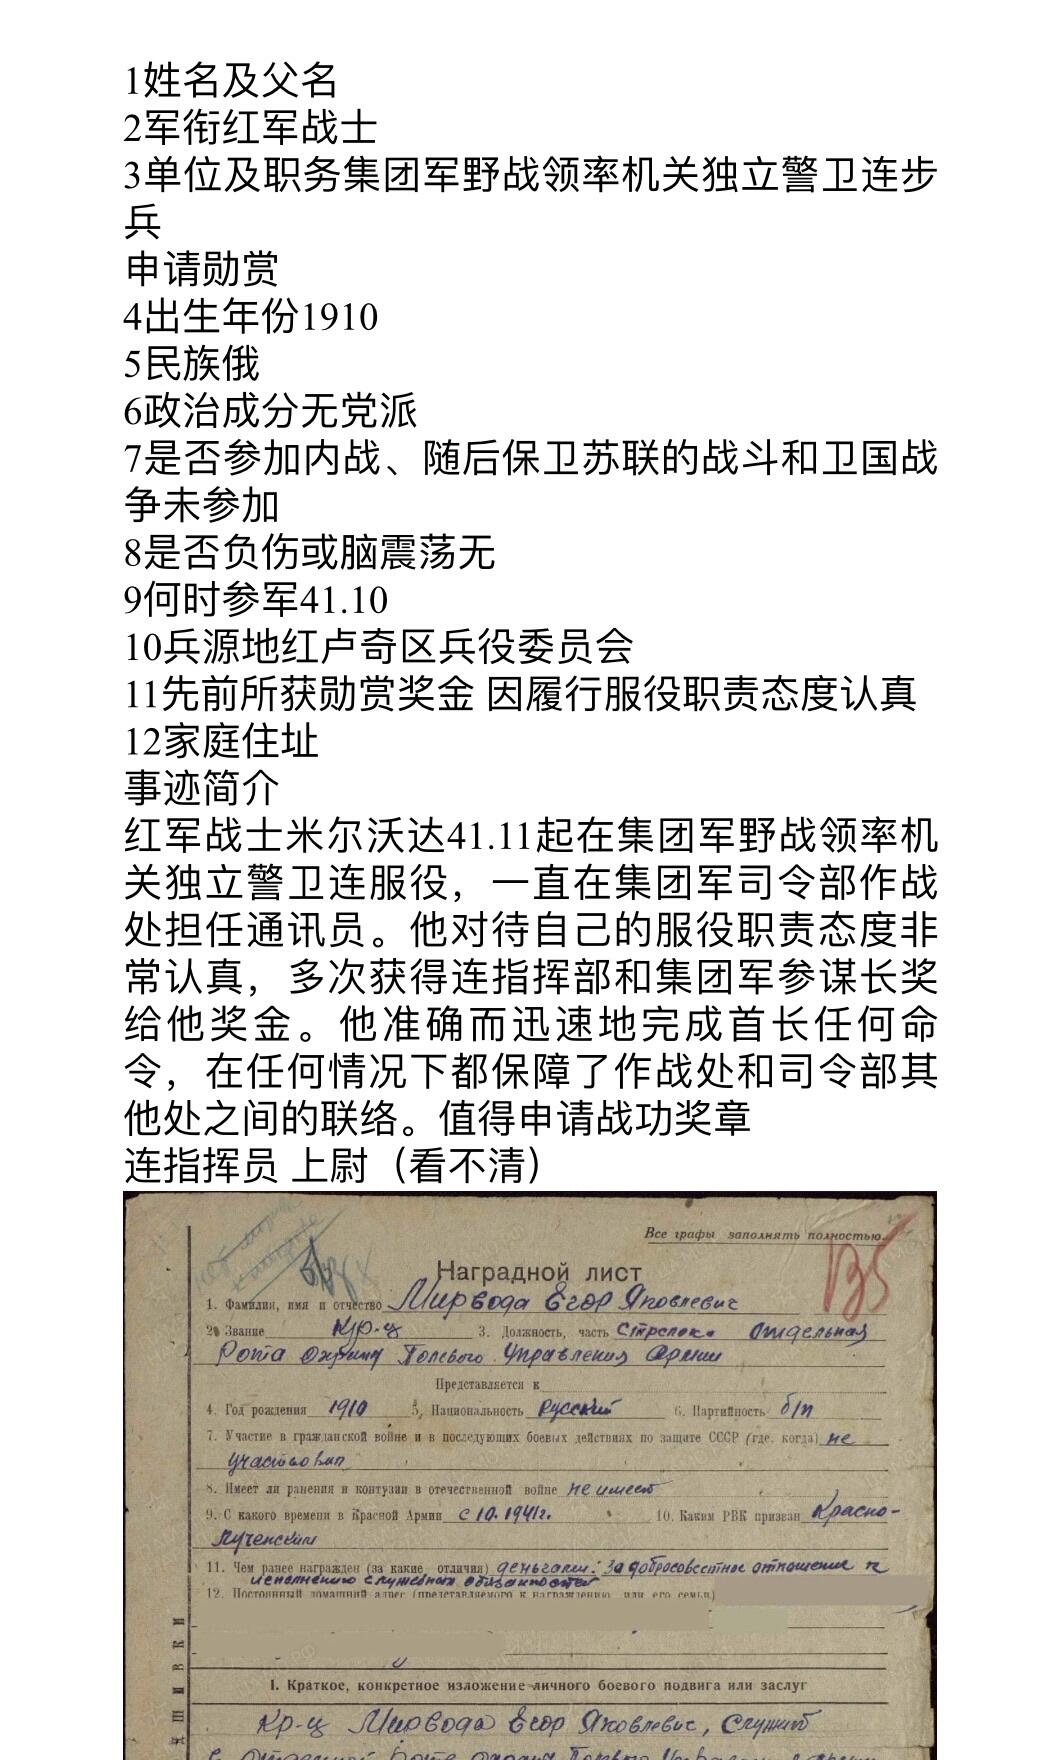 1姓名及父名
2军衔红军战士
3单位及职务集团军野战领率机关独立警卫连步
兵
申请勋赏
4出生年份1910
5民族俄
6政治成分无党派
7是否参加内战、随后保卫苏联的战斗和卫国战
争未参加
8是否负伤或脑震荡无
9何时参军41.10
10兵源地红卢奇区兵役委员会
11先前所获勋赏奖金 因履行服役职责态度认真
12家庭住址
事迹简介
红军战士米尔沃达41.11起在集团军野战领率机
关独立警卫连服役，一直在集团军司令部作战
处担任通讯员。他对待自己的服役职责态度非
常认真，多次获得连指挥部和集团军参谋长奖
给他奖金。他准确而迅速地完成首长任何命
令，在任何情况下都保障了作战处和司令部其
他处之间的联络。值得申请战功奖章
连指挥员 上尉（看不清）
Все графы заполнять полностью.
Наградной лист
1. Фамилия, имя и отчество Мирвода Егор Яковлевич
2. Звание кр-ц 3. Должность, часть Стрелок Отдельная
Рота охраны Полевого Управления Армии
Представляется к
4. Год рождения 1910 5. Национальность Русский 6. Партийность б/п
7. Участие в гражданской войне и в последующих боевых действиях по защите СССР (где, когда) не
участвовал
8. Имеет ли ранения и контузии в отечественной войне не имеет
9. С какого времени в Красной Армии с 10.1941г. 10. Каким РВК призван Красно-
лученским
11. Чем ранее награжден (за какие отличия) деньгами: За добросовестное отношение к
исполнению служебных обязанностей
12. Постоянный домашний адрес (представляемого к награждению или его семьи)
I. Краткое, конкретное изложение личного боевого подвига или заслуг
Кр-ц Мирвода Егор Яковлевич, служит